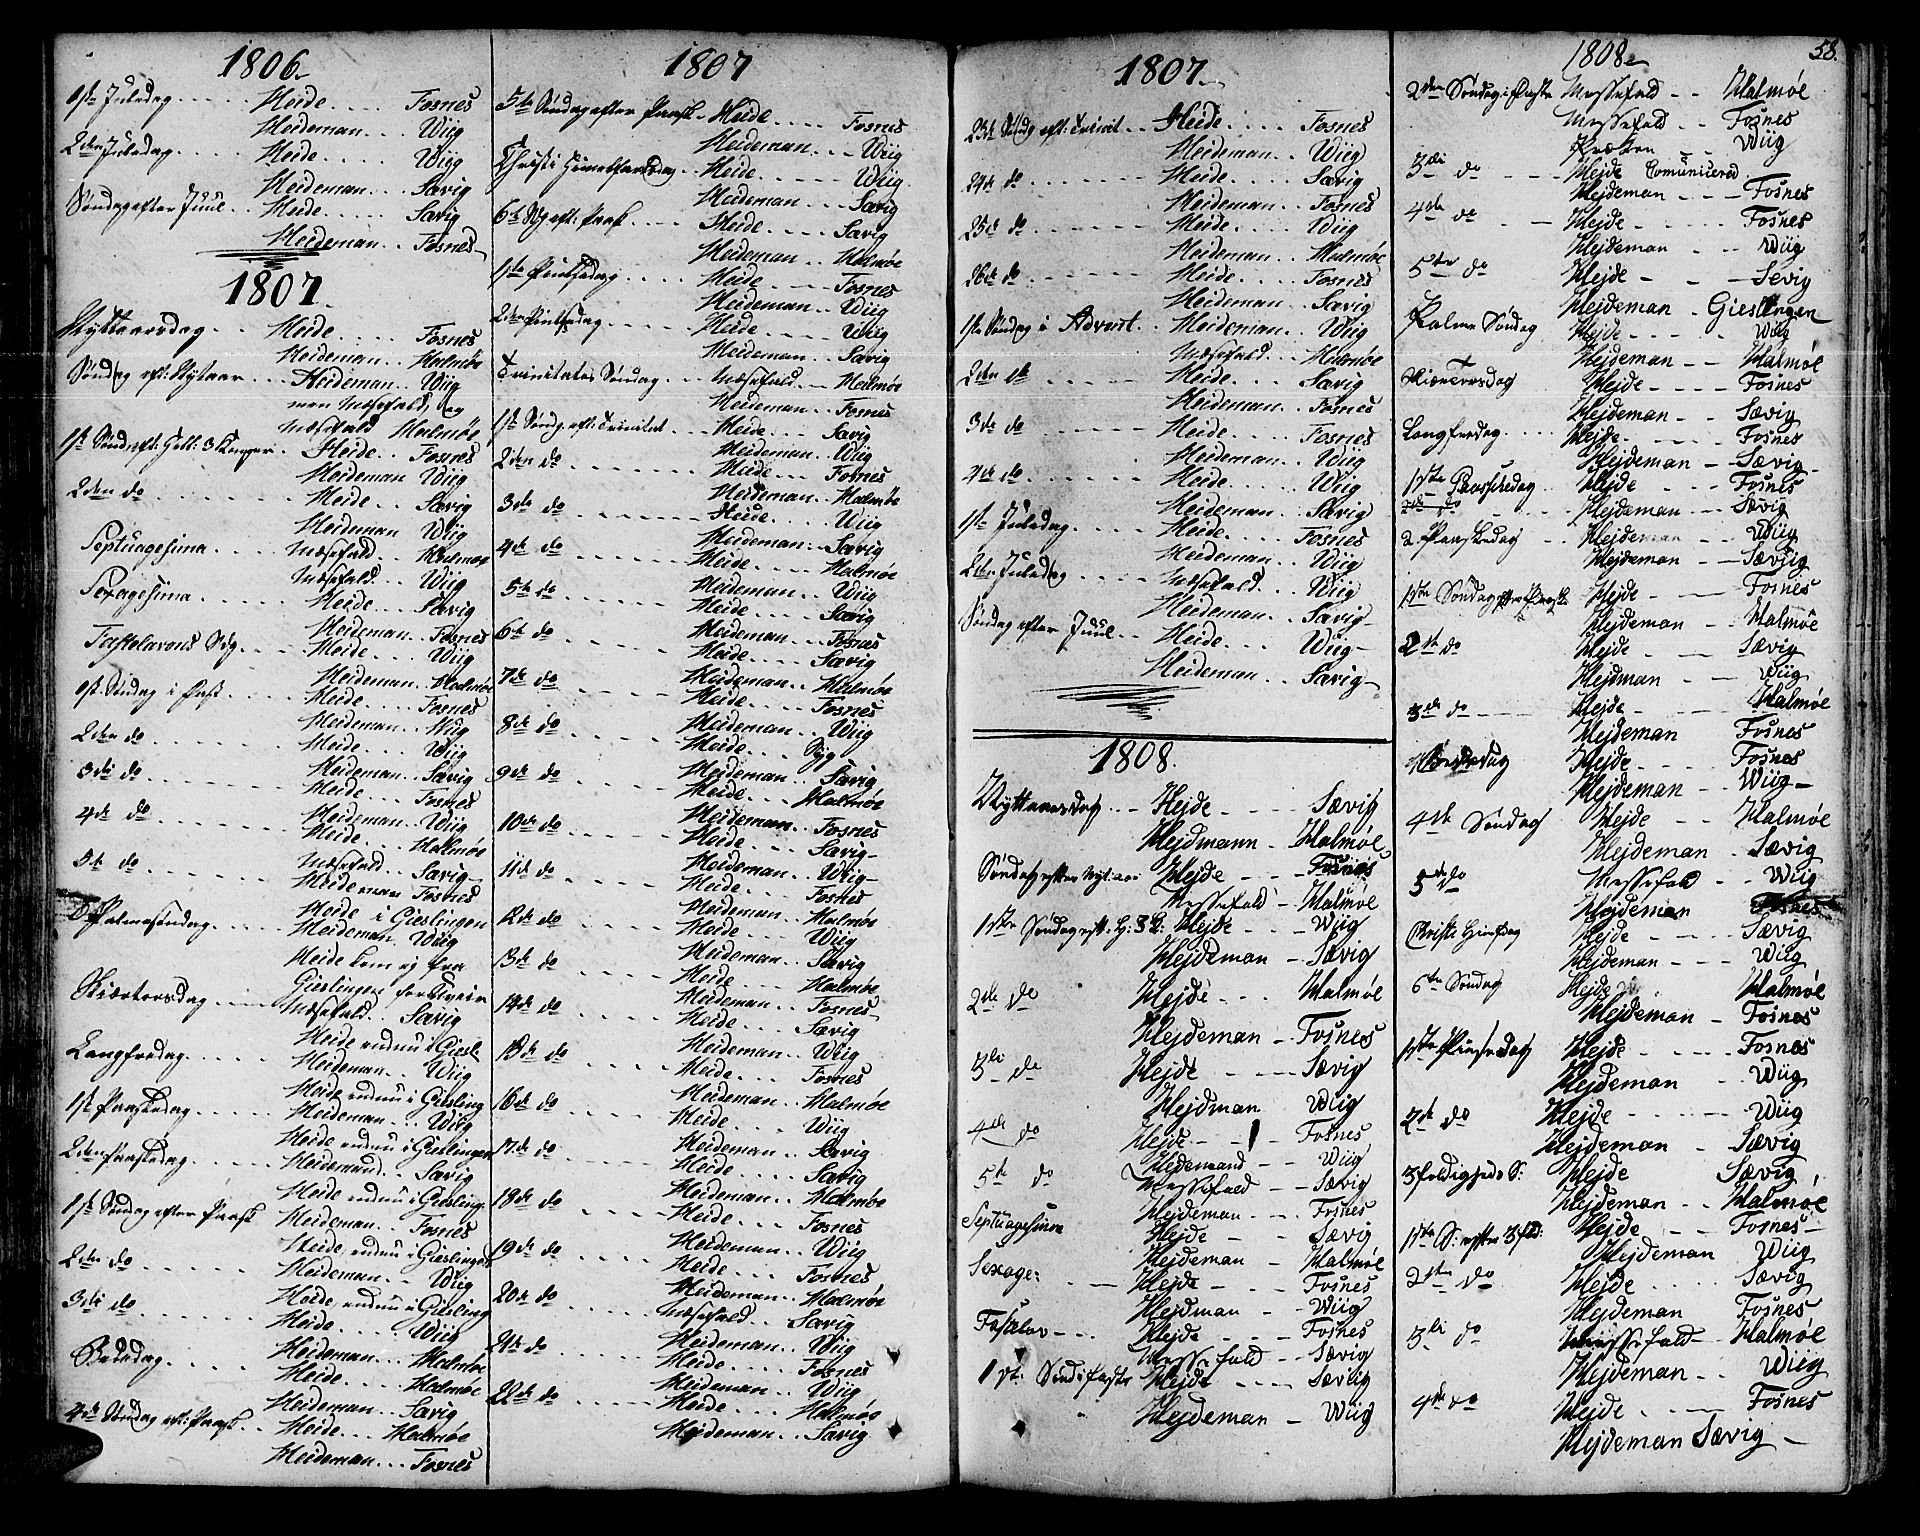 1806
1ste Juledag Heide Fosnes
Heideman Wiig
2den Juledag Heide Wiig
Heideman Sævig
Søndag efter Juul Heide Sævig
Heideman Fosnes
1807
Nyttaarsdag Heide Fosnes
Heideman Malmøe
Søndag eft: Nytaar Heideman Wiig
men Mæsefald og
Mæsefald Malmøe
1ste Sønd: eft: Hell: 3 Konger Heide Fosnes
Heideman Wiig
2den do Heide Sævig
Heideman Wiig
Septuagesima Mæsefald Malmøe
Mæsefald Wiig
Sexagesima Heide Sævig
Heideman Fosnes
Fastelavns Sdg Heide Wiig
Heideman Malmøe
1st Søndag i Fast Heide Fosnes
Heideman Wiig
2den do Heide Wiig
Heideman Sævig
3die do Heide Fosnes
Heideman Wiig
4de do Heide Malmøe
Mæsefald Sævig
5te do Heideman Fosnes
Heide i Gieslingen
Palmesøndag Heideman Wiig
Heide kom ej fra
Gieslingen for
Skiærtorsdag Mæsefald Sævig
Heide endnu i Giesl
Langfredag Heideman Wiig
Heide endnu i Giesling
1ste Paaskedag Heideman Wiig
Heide endnu i Gieslingen
2den Paaskedag Heideman Sævig
Heide endnu i Giesling
1ste Søndag efter Paask Heideman Fosnes
Heide endnu i Gieslingen
2den do Heideman Wiig
Heide endnu i Giesling
3die do Heide Wiig
Heideman Malmøe
Bededag Heide Malmøe
Heideman Sævig
4de Søndag eft: Paask Heide Malmøe
Heideman Fosnes
1807
5te Søndag efter Paask Heide Fosnes
Heideman Wiig
Christi Himmelfartsdag Heide Wiig
Heideman Sævig
6te Sdg eft: Paask Heide Sævig
Heideman Malmøe
1ste Pintsedag Heide Fosnes
Heideman Wiig
2den Pintsedag Heide Wiig
Heideman Sævig
Trinitates Søndag Mæsefald Malmøe
Heideman Fosnes
1ste Søndg. eft: Trinitat Heide Sævig
Heideman Wiig
2den do Heide Fosnes
Heideman Malmøe
3die do Heide Wiig
Heideman Sævig
4de do Heide Malmøe
Heideman Wiig
5te do Heide Sævig
Heideman Fosnes
6te do Heide Sævig
Heideman Malmøe
7de do Heide Fosnes
Heideman Wiig
8de do Heide Syg
Heideman Sævig
9de do Heide Malmøe
Heideman Fosnes
10de do Heide Sævig
Heideman Wiig
11de do Heide Fosnes
Heideman Malmøe
12de do Heide Wiig
Heideman Sævig
13de do Heide Malmøe
Heideman Fosnes
14de do Heide Sævig
Heideman Wiig
15de do Heide Fosnes
Heideman Malmøe
16de do Heide Wiig
Heideman Sævig
17de do Heide Sævig
Heideman Malmøe
18de do Heide Fosnes
Heideman Wiig
19de do Heide Fosnes
Heideman Malmøe
20de do Mæsefald Sævig
Heideman Wiig
21de do Heide Fosnes
Heideman Wiig
22de do Heide Malmøe
Heideman Sævig
1807
23de Søndg eft: Trinit Heide Fosnes
Heideman Wiig
24de do Heide Sævig
Heideman Fosnes
25de do Heide Wiig
Heideman Malmøe
26de do Heide Fosnes
Heideman Sævig
1ste Søndag i Advent Heideman Wiig
Mæsefald Malmøe
2den do Heide Sævig
Heideman Fosnes
3die do Heide Fosnes
Heideman Wiig
4de do Heide Wiig
Heideman Sævig
1ste Juledag Heide Fosnes
Heideman Wiig
2den Juledag Mæsefald Wiig
Heideman Sævig
Søndag efter Juul Heide Wiig
Heideman Sævig
1808.
Nyttaarsdag Hejde Sævig
Hejdmann Malmøe
Søndag efter Nyt Hejde Fosnes
Messefald Malmøe
1ste Søndag eft: H: 3 K: Hejde Wiig
Hejdeman Sævig
2de do Hejde Malmøe
Hejdeman Fosnes
3di do Hejde Sævig
Hejdman Wiig
4de do Hejde Fosnes
Hejdemand Wiig
5te do Messefald Sævig
Hejdeman Fosnes
Septuagesima Hejde Sævig
Hejdeman Malmøe
Sexage: Hejde Fosnes
Hejdman Wiig
Fastelav Hejde Fosnes
Messefald Sævig
1st: Sønd i Faste Hejde Sævig
Hejdeman Wiig
58.
1808
2den Søndag i Faste Messefald Malmøe
Messefald Fosnes
Præken Wiig
3di do Hejde Comunicered
Hejdeman Fosnes
4de do Hejde Fosnes
Hejdeman Wiig
5te do Hejde Sevig
Hejdeman Gieslingen
Palme Søndag Hejde Wiig
Hejdeman Malmøe
Skiærtorsdag Hejde Fosnes
Hejdeman Sævig
Langfredag Hejde Fosnes
Hejdeman Sævig
1ste Paaskedag Hejde Fosnes
2de do Hejdeman Sævig
2 Paaskedag Hejdeman Wiig
Hejdeman Sævig
1ste Søndag efter Paaske Hejde Fosnes
Hejdeman Malmøe
2de do Hejde Sævig
Hejdman Wiig
3di do Hejde Malmøe
Hejdeman Fosnes
Bededag Hejde Fosnes
Hejdeman Wiig
4de Søndag Hejde Malmøe
Hejdeman Sævig
5te do Messefald Wiig
Hejdeman Fosnes
Christi Himfdag Hejde Sævig
Hejdeman Wiig
6te Søndag Hejde Malmøe
Hejdeman Fosnes
1ste Pinsedag Hejde Fosnes
Hejdeman Wiig
2de do Hejde Wiig
Hejdeman Sævig
3foldigheds S: Hejde Sævig
Hejdeman Malmøe
1ste S: efter 3fold: Hejde Fosnes
Hejdeman Wiig
2de do Hejde Sævig
Hejdeman Fosnes
3di do Messefald Malmøe
Hejdeman Wiig
4de do Hejde Fosnes
Hejdeman Sævig